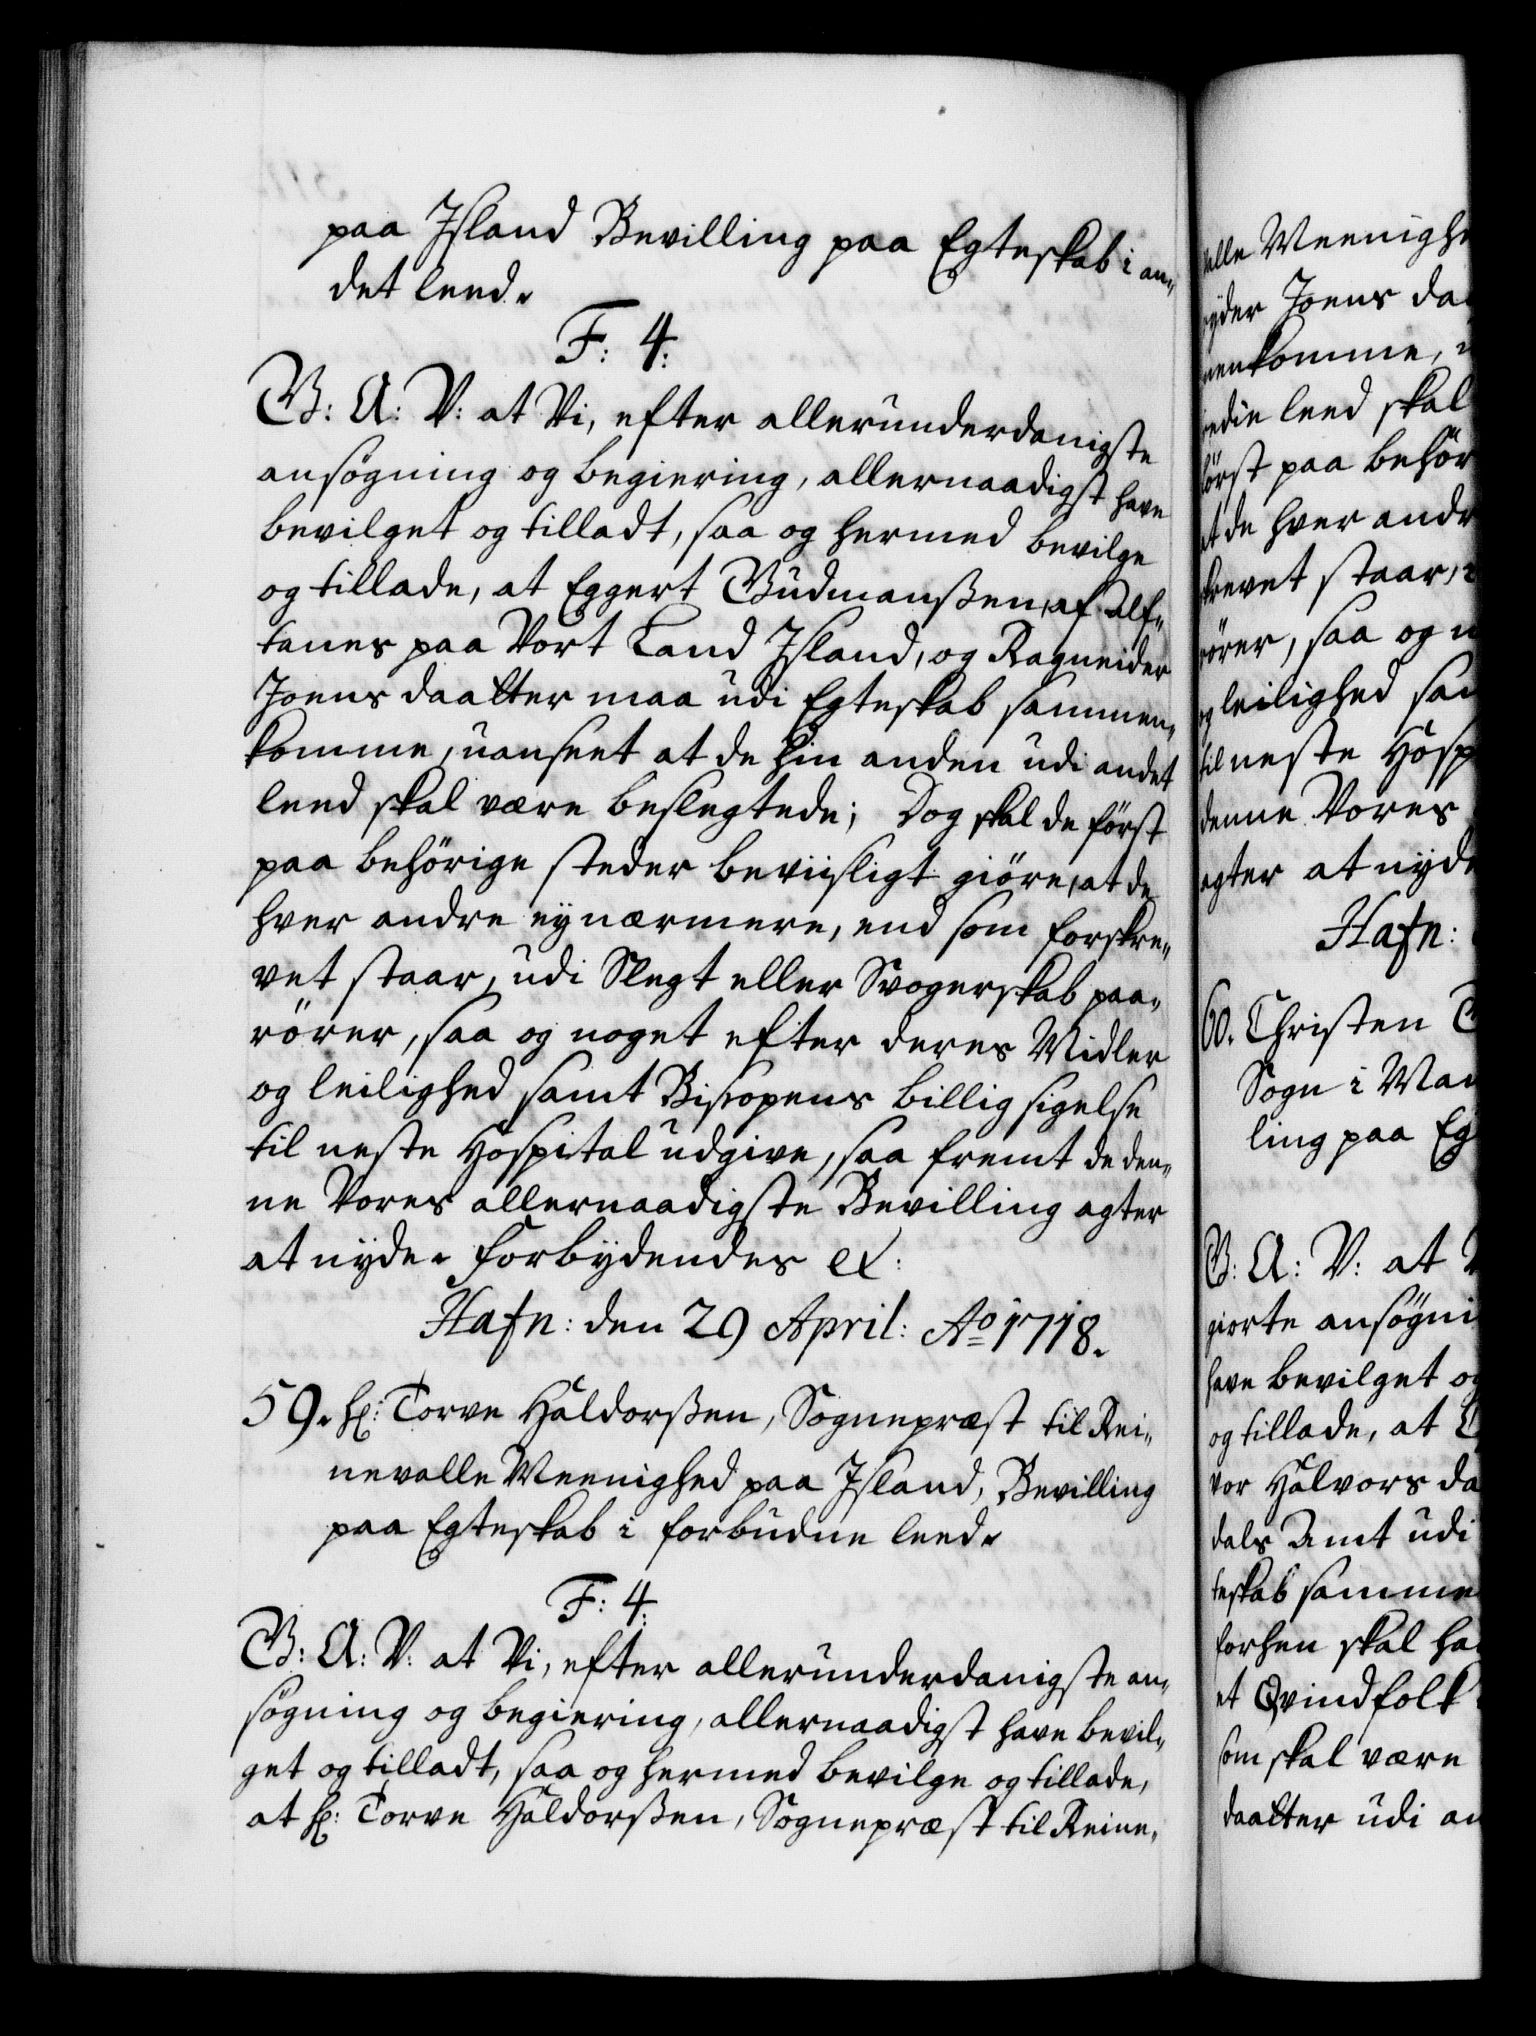 paa Jsland Bevilling paa Egteskab i an-
det leed.
F: 4.
G: A: V: at Vi, efter allerunderdanigste
ansøgning og begiering, allernaadigst have
bevilget og tilladt, saa og hermed bevilge
og tillade, at Eggert Gudmanßen, af Alf-
tanes paa Vort Land Jsland, og Ragneider
Joens daatter maa udi Egteskab sammen-
komme, uanseet at de hin anden udi andet
leed skal være beslegtede; Dog skal de først
paa behörige steder beviisligt giöre, at de
hver andre ey nærmere, end som forskre-
vet staar, udi Slegt eller Svogerskab paa-
rörer, saa og noget efter deres Midler
og leilighed samt Biscopens billig sigelse
til neste Hospital udgive, saa fremt de den-
ne Vores allernaadigste Bevilling agter
at nyde. Forbydendes etc:
Hafn: den 29 April: Ao 1718.
59. Hr: Torve Haldorßen, Sognepræst til Rei-
nevalle Meenighed paa Jsland, Bevilling
paa Egteskab i forbudne leed.
F: 4.
G: A: V: at Vi, efter allerunderdanigste an-
søgning og begiering, allernaadigst have bevil-
get og tilladt, saa og hermed bevilge og tillade,
at Hr: Torve Haldorßen, Sognepræst til Reine-
alle Meenighe
Joens da
komme,
leed skal
først paa behör
at de hver andr
krevet staar,
rörer, saa og n
og leilighed sam
til neste Hosp
denne Vores
agter at nyde
Hafn:
60. Christen
Sogn i Man
ling paa Eg
G: A: V: at
giorte ansøgni
have bevilget og
og tillade, at
vor Halvors da
dals Amt udi
teskab somme
forhen skal ha
et Qvindfolk
som skal være
daatter udi an